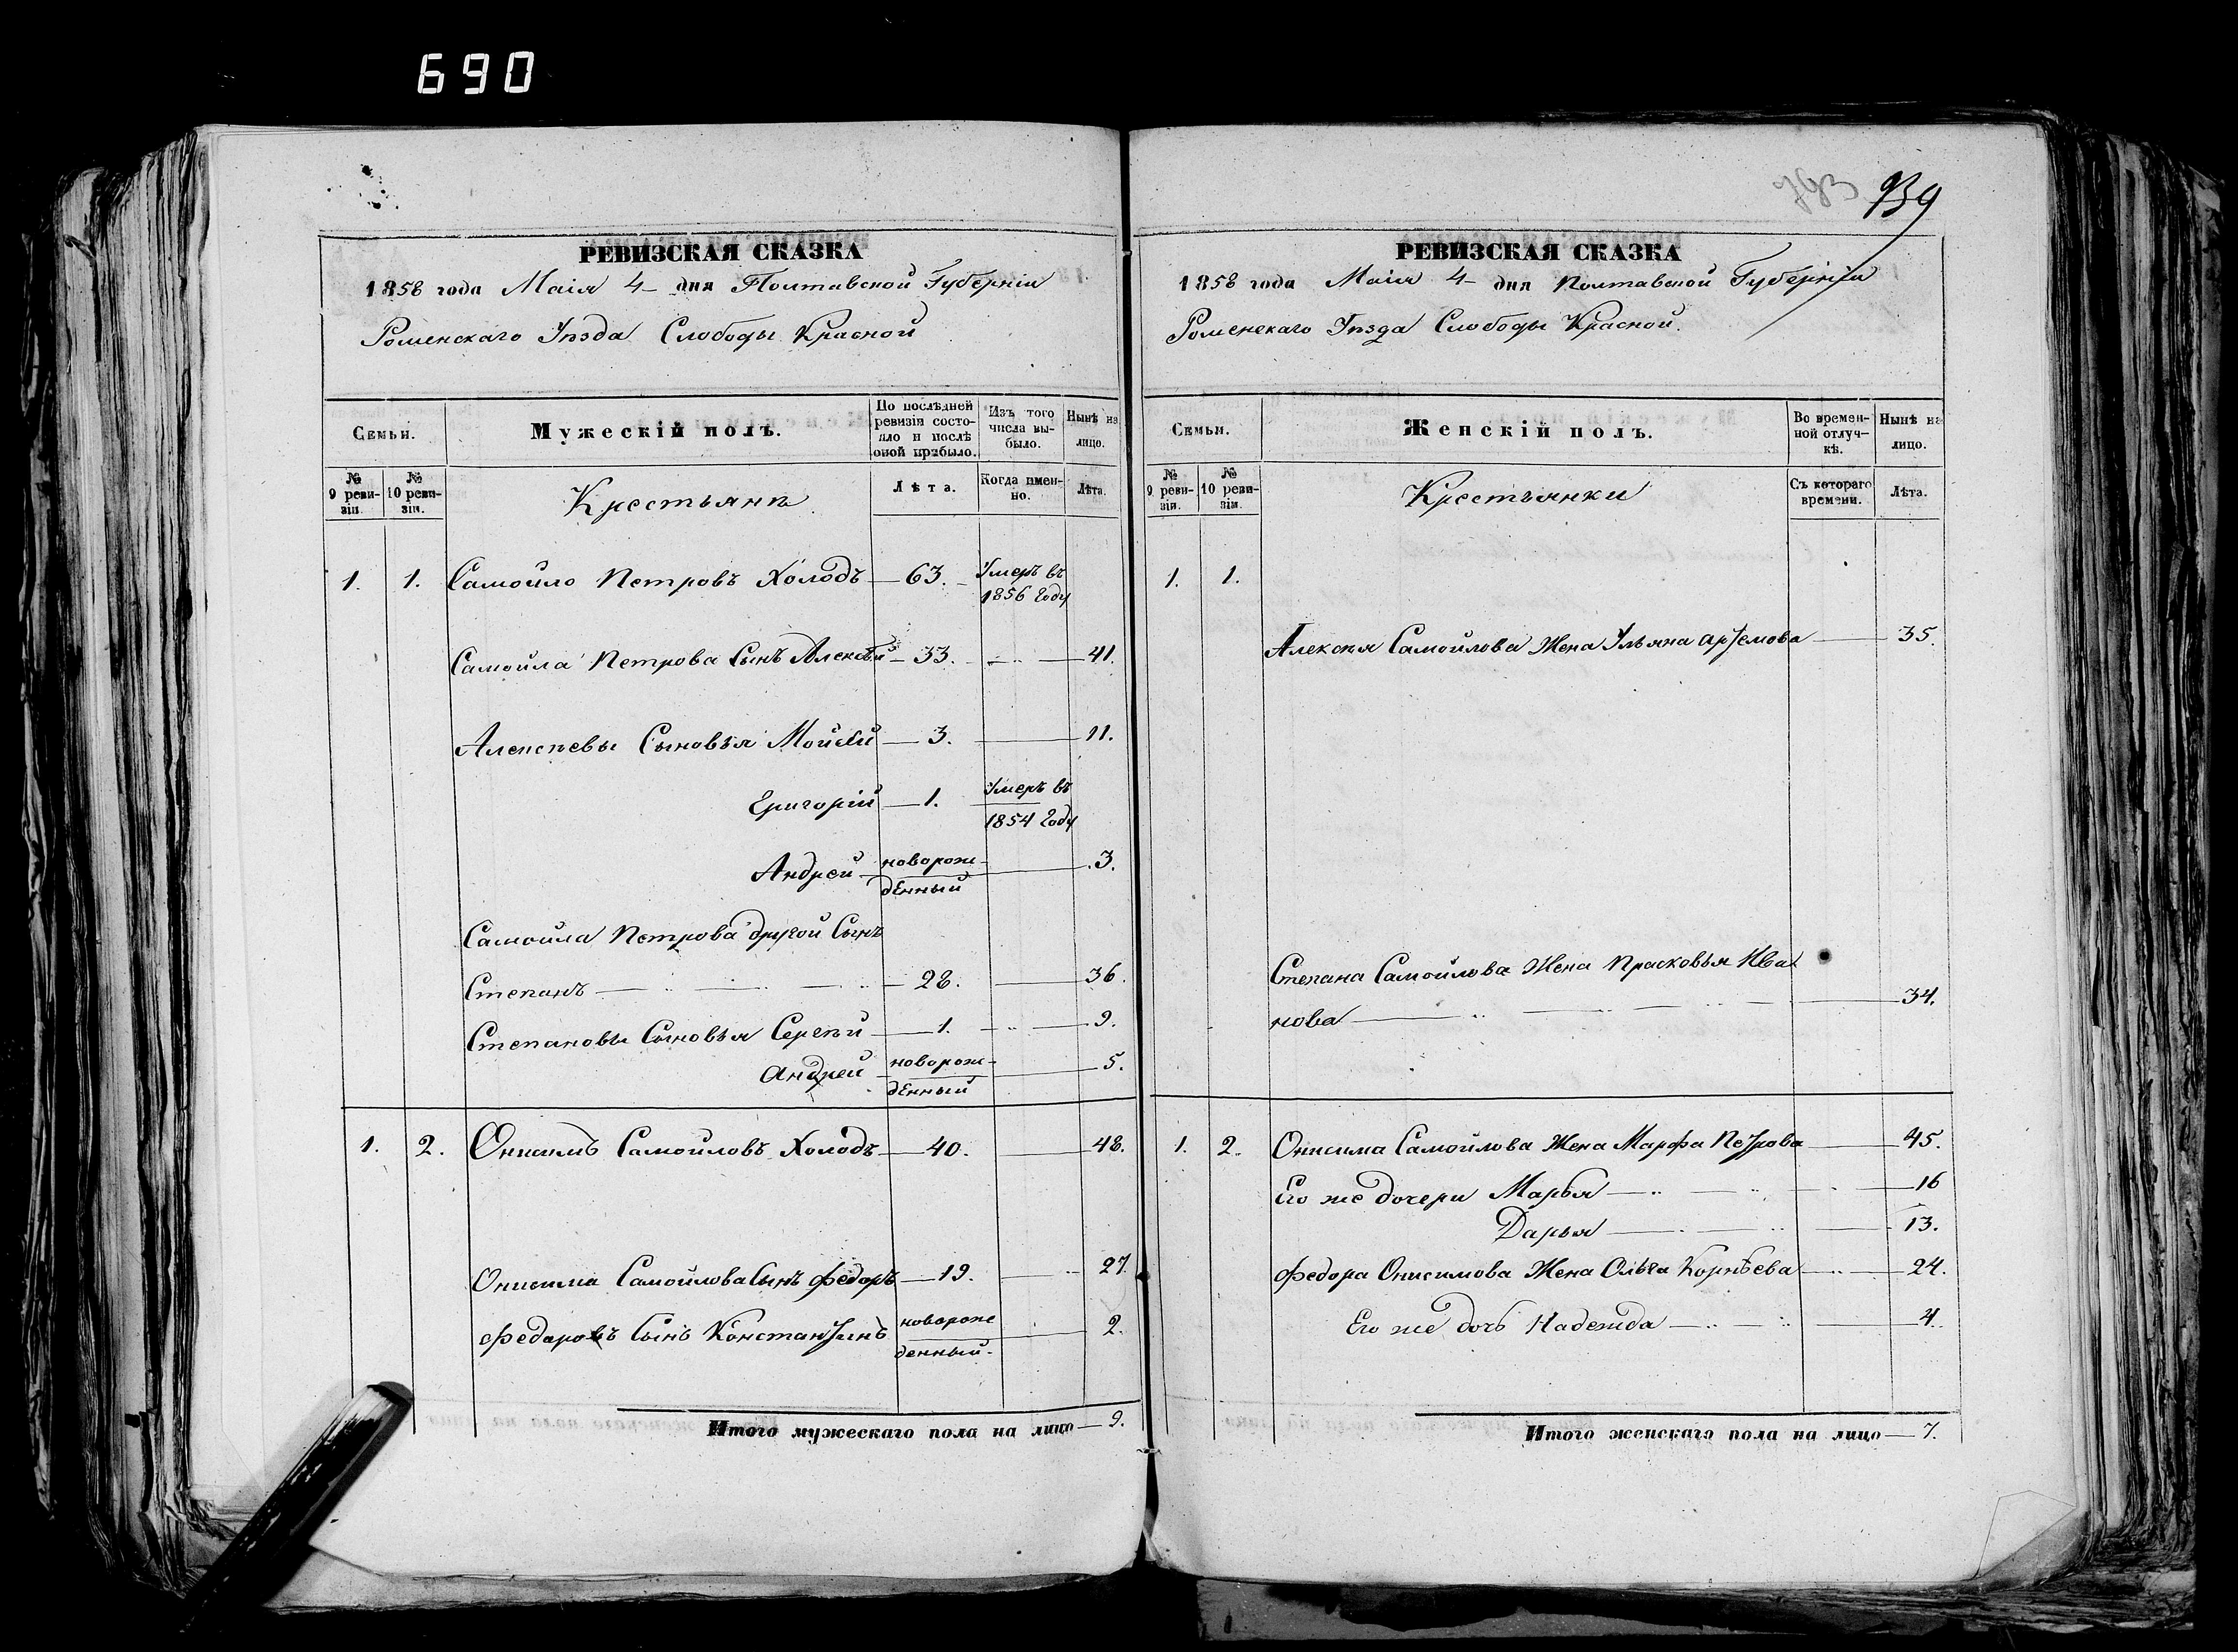 690
939
РЕВИЗСКАЯ СКАЗКА
1858 года Маія 4 дня Полтавской Губерніи
Роменскаго Уѣзда Слободы Красной
Семьи. Мужескій полъ. По послѣдней ревизіи состояло и послѣ оной прибыло. Изъ того числа выбыло. Нынѣ на лицо.
№ 9 ревизіи. № 10 ревизіи. Крестьянѣ Лѣта. Когда именно. Лѣта.
1. 1. Самойло Петровъ Холодъ 63. Умеръ въ
1856 Году
Самойла Петрова Сынъ Алексѣй 33. 41.
Алексѣевы Сыновья Мойсѣй 3. 11.
Григорій 1. Умеръ въ
1854 Году
Андрей новорож-
денный 3.
Самойла Петрова другой Сынъ
Степанъ 28. 36.
Степановы Сыновья Сергѣй 1. 9.
Андрей новорож-
денный 5.
1. 2. Онисимъ Самойловъ Холодъ 40. 48.
Онисима Самойлова Сынъ Федоръ 19. 27
Федоровъ Сынъ Константинъ новорож
денный. 2.
Итого мужескаго пола на лицо 9.
РЕВИЗСКАЯ СКАЗКА
1858 года Маія 4 дня Полтавской Губерніи
Роменскаго Уѣзда Слободы Красной.
Семьи. Женскій полъ. Во временной отлучкѣ. Нынѣ на лицо.
№ 9 ревизіи. № 10 ревизіи. Крестьянки Съ котораго времени. Лѣта.
1. 1.
Алексѣя Самойлова Жена Ульяна Артемова 35.
Степана Самойлова Жена Прасковья Ива
нова 34.
1. 2. Онисима Самойлова Жена Марфа Петрова 45.
Его же дочери Марья 16
Дарья 13.
Федора Онисимова Жена Ольга Корнѣева 24.
Его же дочь Надежда 4.
Итого женскаго пола на лицо 7.